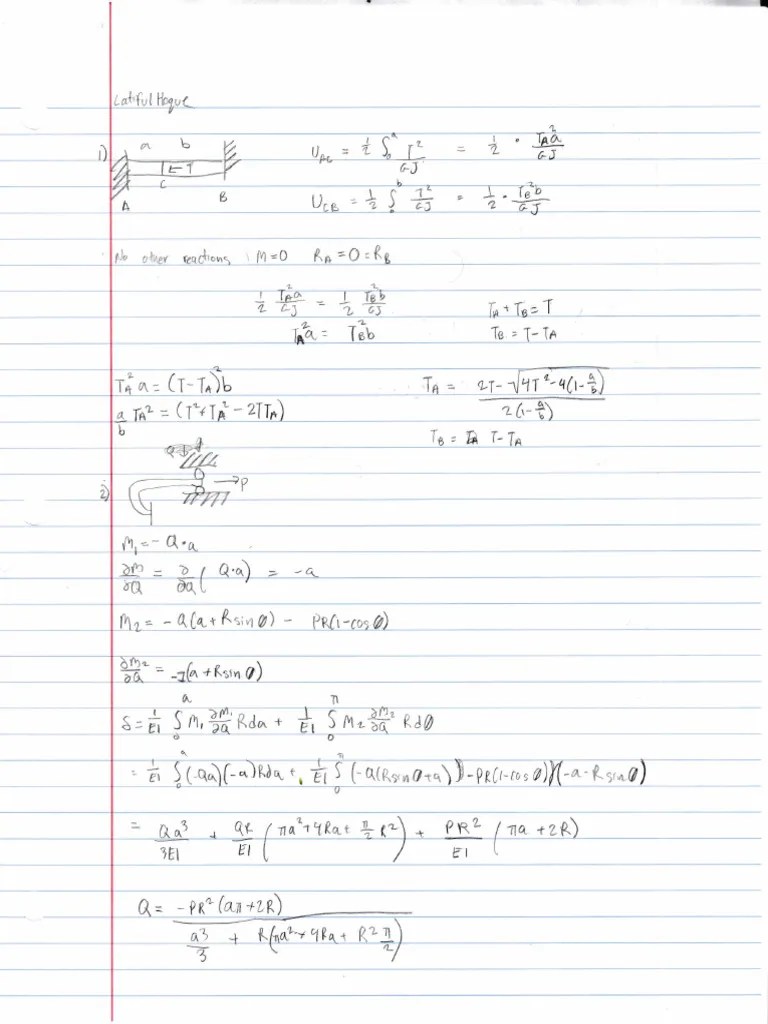 Latiful Hoque
1)
a b
T
C
A B
U_AC = 1/2 ∫_0^a T²/GJ = 1/2 · T_A²a/GJ
U_CB = 1/2 ∫_0^b T²/GJ = 1/2 · T_B²b/GJ
No other reactions, M=0 R_A=0=R_B
1/2 T_A²a/GJ = 1/2 T_B²b/GJ T_A+T_B=T
T_A²a = T_B²b T_B = T-T_A
T_A² a = (T-T_A)²b T_A = (2T-√(4T²-4(1-a/b)))/(2(1-a/b))
a/b T_A² = (T²+T_A²-2TT_A)
T_B = T-T_A
2) →P
M_1 = -Q·a
∂M/∂Q = ∂/∂Q (Q·a) = -a
M_2 = -Q(a+Rsinθ) - PR(1-cosθ)
∂M_2/∂Q = -1(a+Rsinθ)
δ = 1/EI ∫_0^a M_1 ∂M_1/∂Q Rda + 1/EI ∫_0^π M_2 ∂M_2/∂Q Rdθ
= 1/EI ∫_0^a (-Qa)(-a)Rda + 1/EI ∫_0^π (-Q(Rsinθ+a))-PR(1-cosθ))(-a-Rsinθ)
= Qa³/3EI + QR/EI (πa²+4Ra+π/2 R²) + PR²/EI (πa+2R)
Q = -PR²(aπ+2R)/(a³/3 + R(πa²+4Ra+R²π/2))